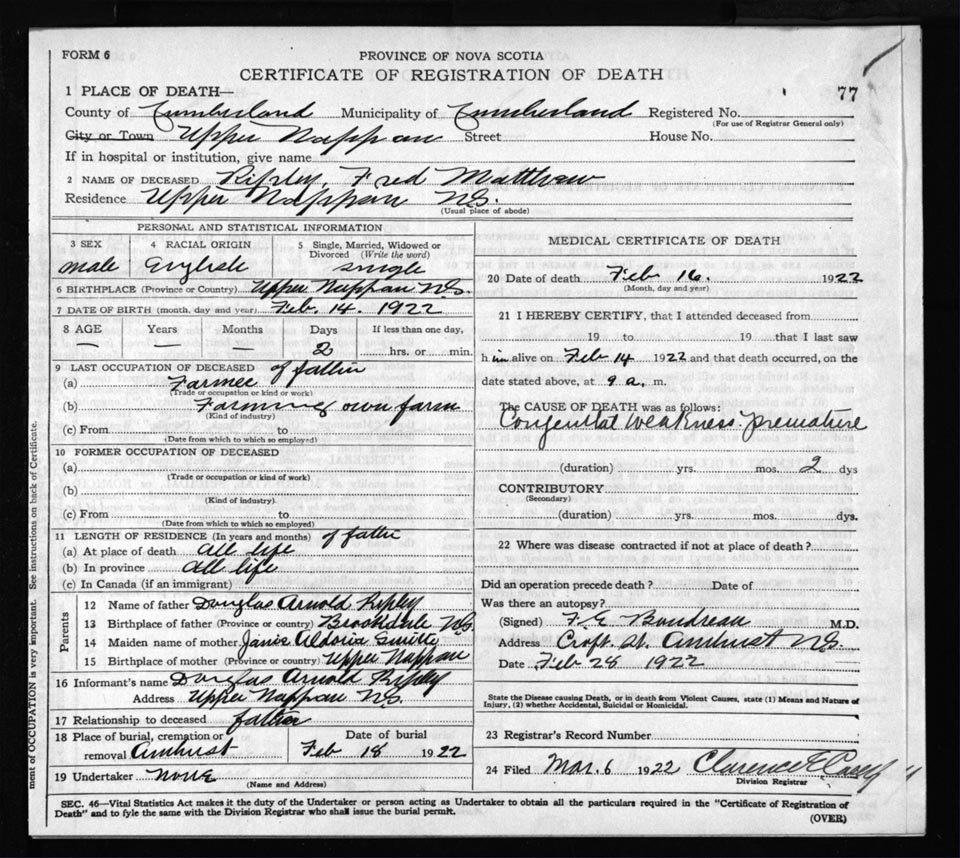 FORM 6
PROVINCE OF NOVA SCOTIA
CERTIFICATE OF REGISTRATION OF DEATH
77
1 PLACE OF DEATH—
County of Cumberland Municipality of Cumberland Registered No.
(For use of Registrar General only)
City or Town Upper Nappan Street House No.
If in hospital or institution, give name
2 NAME OF DECEASED Ripley, Fred Matthew
Residence Upper Nappan N.S.
(Usual place of abode)
PERSONAL AND STATISTICAL INFORMATION
3 SEX 4 RACIAL ORIGIN 5 Single, Married, Widowed or Divorced (Write the word)
male English single
6 BIRTHPLACE (Province or Country) Upper Nappan N.S.
7 DATE OF BIRTH (month, day and year) Feb. 14. 1922
8 AGE Years Months Days If less than one day,
— — — 2 hrs. or min.
9 LAST OCCUPATION OF DECEASED of father
(a) Farmer
(Trade or occupation or kind of work)
(b) Farming own farm
(Kind of industry)
(c) From to
(Date from which to which so employed)
10 FORMER OCCUPATION OF DECEASED
(a)
(Trade or occupation or kind of work)
(b)
(Kind of industry)
(c) From to
(Date from which to which so employed)
11 LENGTH OF RESIDENCE (In years and months) of father
(a) At place of death all life
(b) In province all life
(c) In Canada (if an immigrant)
Parents
12 Name of father Douglas Arnold Ripley
13 Birthplace of father (Province or country) Brookdale N.S.
14 Maiden name of mother Janie
15 Birthplace of mother (Province or country) Upper Nappan
16 Informant's name Douglas Arnold Ripley
Address Upper Nappan N.S.
17 Relationship to deceased father
18 Place of burial, cremation or removal Amherst Date of burial Feb 18 1922
19 Undertaker none
(Name and Address)
MEDICAL CERTIFICATE OF DEATH
20 Date of death Feb 16. 1922
(Month, day and year)
21 I HEREBY CERTIFY, that I attended deceased from
19 to 19 that I last saw
h im alive on Feb 14 1922 and that death occurred, on the
date stated above, at 9 a. m.
The CAUSE OF DEATH was as follows:
Congenital Weakness. Premature
(duration) yrs. mos. 2 dys
CONTRIBUTORY
(Secondary)
(duration) yrs. mos. dys.
22 Where was disease contracted if not at place of death?
Did an operation precede death? Date of
Was there an autopsy?
(Signed) F. E. Boudreau M.D.
Address Croft St. Amherst N.S.
Date Feb 28 1922
State the Disease causing Death, or in death from Violent Causes, state (1) Means and Nature of
Injury, (2) whether Accidental, Suicidal or Homicidal.
23 Registrar's Record Number
24 Filed Mar. 6 1922 Clarence E
Division Registrar
SEC. 46—Vital Statistics Act makes it the duty of the Undertaker or person acting as Undertaker to obtain all the particulars required in the "Certificate of Registration of
Death" and to fyle the same with the Division Registrar who shall issue the burial permit.
(OVER)
ment of OCCUPATION is very important. See instructions on back of Certificate.